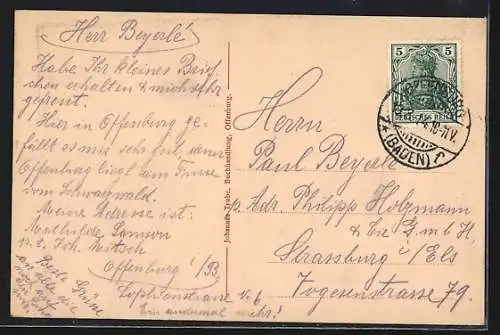 Herr Beyerlé
Habe Ihr kleines Brief
chen erhalten & mich sehr
gefreut.
Hier in Offenburg ge-
fällt es mir sehr gut, denn
Offenburg liegt am Fusse
vom Schwarzwald.
Meine Adresse ist:
Mathilde Samson
Joh. Nitsch
Offenburg i/B.
Sophienstrasse No. 6
Ein andermal mehr!
Beste Grüsse
Johannes Trube, Buchhandlung, Offenburg.
5 5
DEUTSCHES REICH
OFFENBURG
(BADEN)
Herrn
Paul Beyerle
p. Adr. Philipp Holzmann
& Cie G.m.b.H.
Strassburg i/Els
Vogesenstrasse 79.